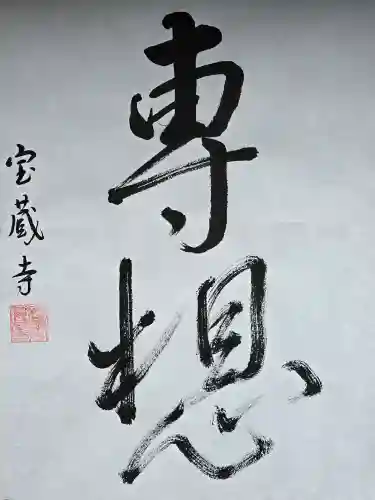 専想
宝蔵寺